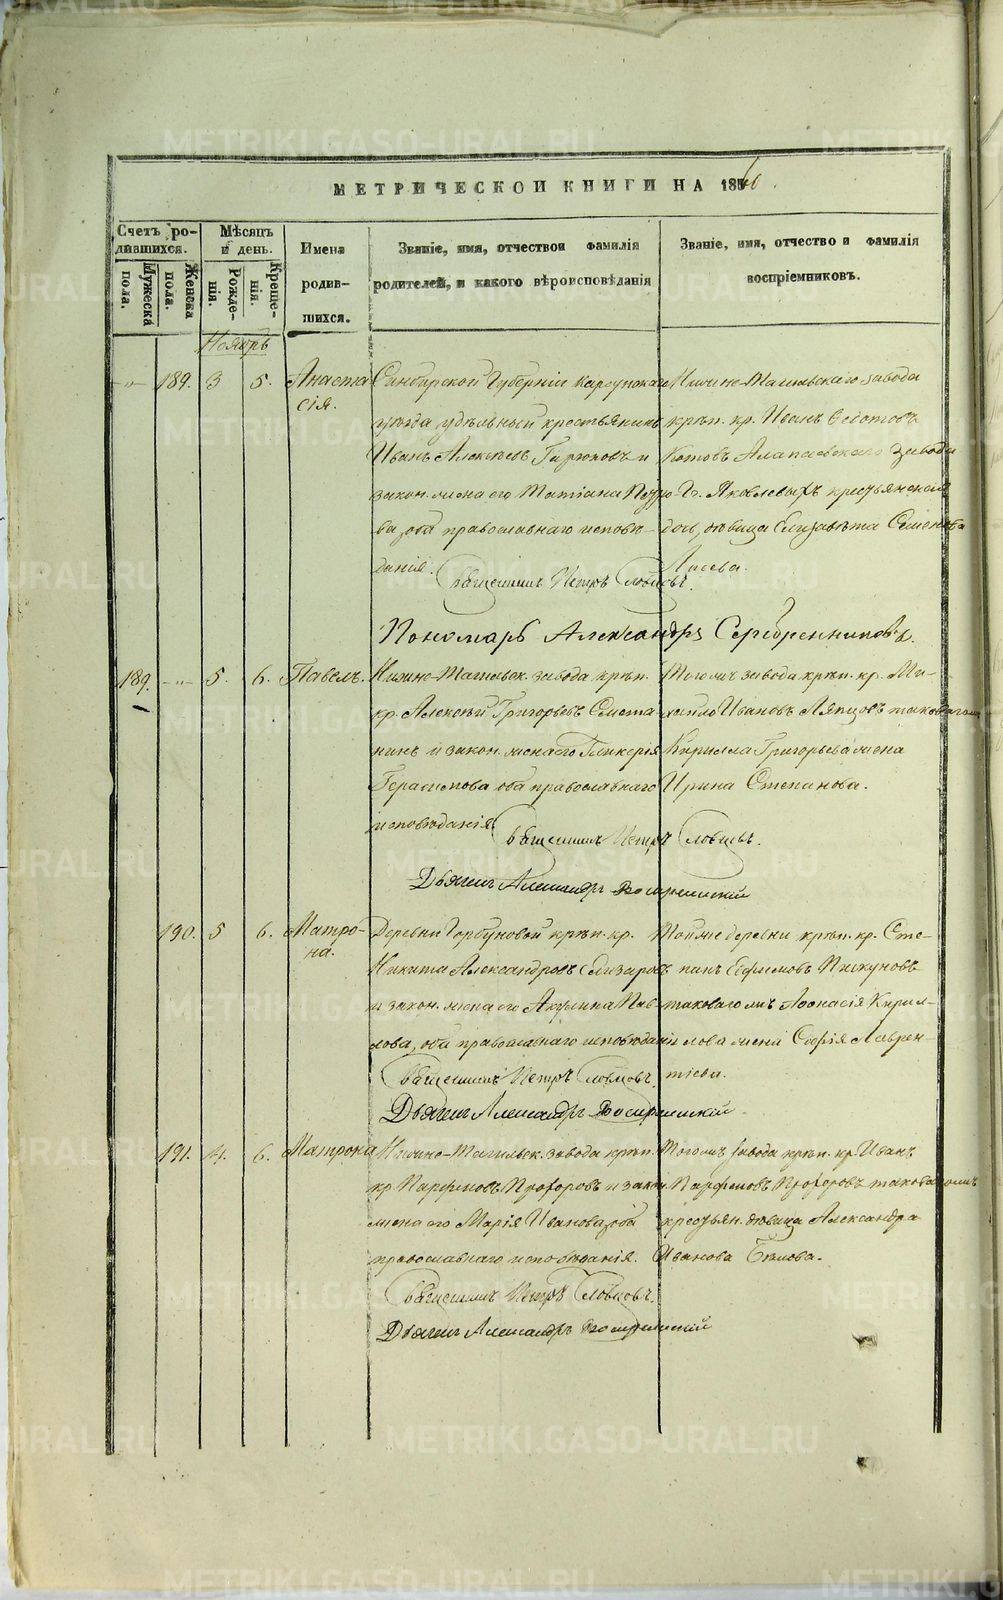 МЕТРИЧЕСКОЙ КНИГИ НА 1860.
Счетъ родившихся.
Мѣсяцъ и день.
Имена родившихся.
Званіе, имя, отчество и фамилія родителей, и какого вѣроисповѣданія
Званіе, имя, отчество и фамилія воспріемниковъ.
Мужеска пола.
Женска пола.
Рожденія.
Крещенія.
Ноябрь
189. 3 5. Анастасія.
Симбирской Губерніи Карсунскаго
уѣзда удѣльный крестьянинъ
Иванъ Алексѣевъ и
закон. жена его Татіана Петрова, оба православнаго исповѣданія.
Нижне-Тагильскаго завода
крѣп. кр. Иванъ Ѳедотовъ
Котовъ Алапаевскаго завода
Г. Яковлевыхъ крестьянская
дочь, дѣвица Елизавета Семенова
Священникъ Петръ Словцовъ.
Пономарь Александръ Серебренниковъ.
189. 5. 6. Павелъ.
Нижне-Тагильск. завода крѣп.
кр. Алексѣй Григорьевъ Сметанинъ и закон. жена его Гликерія
Герасимова оба православнаго
исповѣданія
Тогожъ завода крѣп. кр. Михаило Ивановъ Ляпцовъ таковагожъ
Кирилла Григорьева жена
Ирина Степанова.
Священникъ Петръ Словцовъ.
Дьячекъ Александръ
190. 5 6. Матрона.
Деревни Горбуновой крѣп. кр.
Никита Александровъ Елизаровъ
и закон. жена его Акулина Павлова, оба православнаго исповѣданія
Тойже деревни крѣп. кр. Степанъ Ефимовъ Пискуновъ
таковагожъ Аѳонасія Кириллова жена Софія Лаврентіева.
Священникъ Петръ Словцовъ.
Дьячекъ Александръ
191. 4. 6. Матрона
Нижне-Тагильск. завода крѣп.
кр. Парфенъ Прохоровъ и закон.
жена его Марія Иванова, оба
православнаго исповѣданія.
Тогожъ завода крѣп. кр. Иванъ
Парфеновъ Прохоровъ таковагожъ
крестьян. дѣвица Александра
Иванова Бѣлова.
Священникъ Петръ Словцовъ.
Дьячекъ Александръ
METRIKI.GASO-URAL.RU